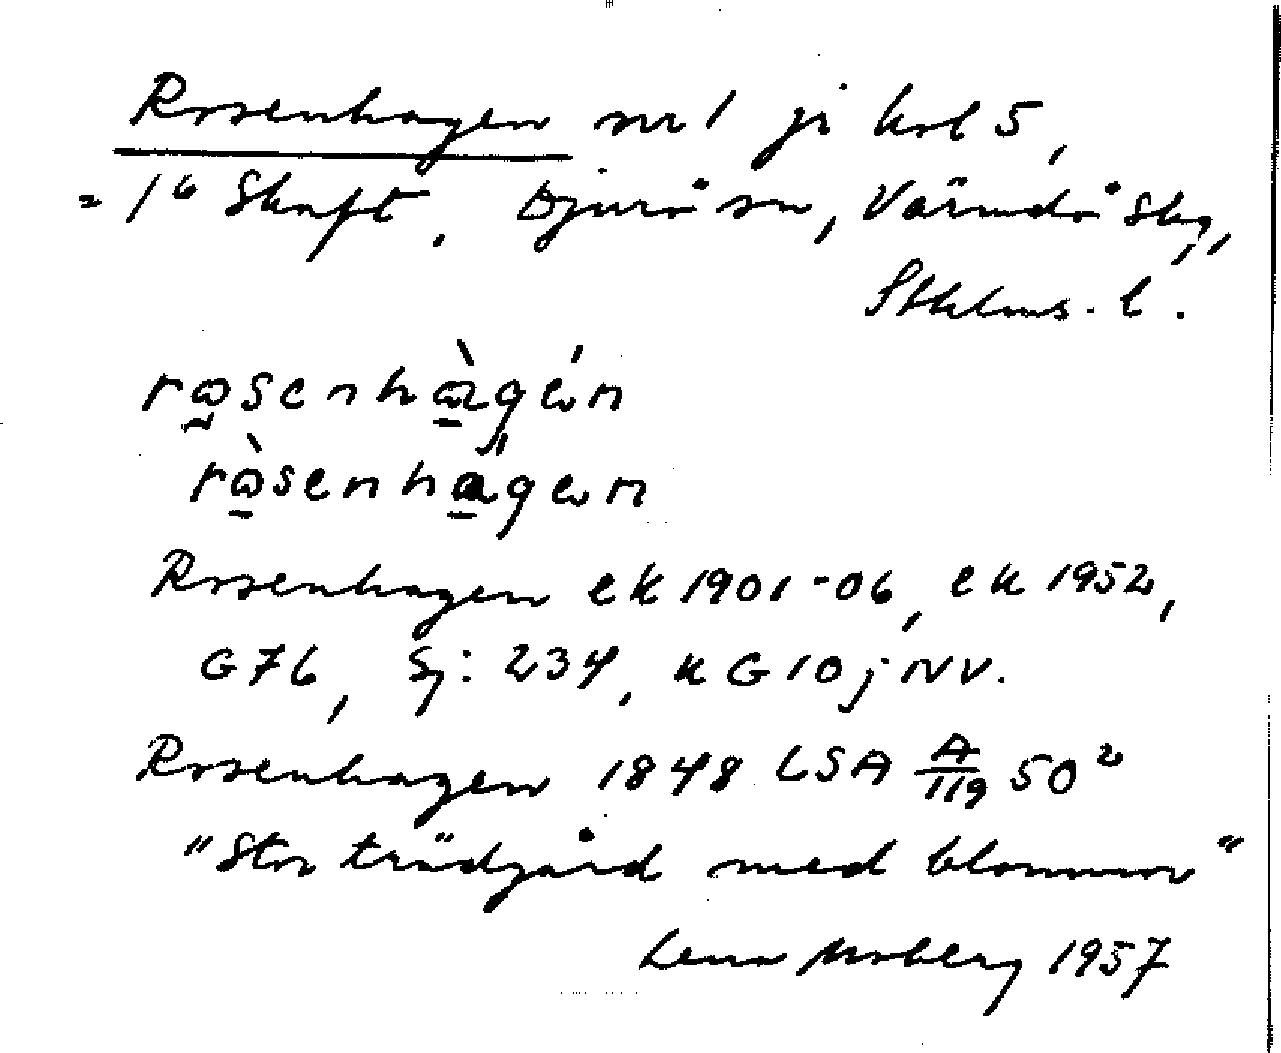 Rosenhagen nr 1 ji kol 5,
= 1⁶ Skaft, Djurö sn, Värmdö skg,
Sthlms. l.
rosenhàgén
ròsenhagen
Rosenhagen ek 1901-06, ek 1952,
G76, Sj: 234, k G10j NV.
Rosenhagen 1848 LSA A/119 50²
"Stor trädgård med blommor"
Lena Moberg 1957